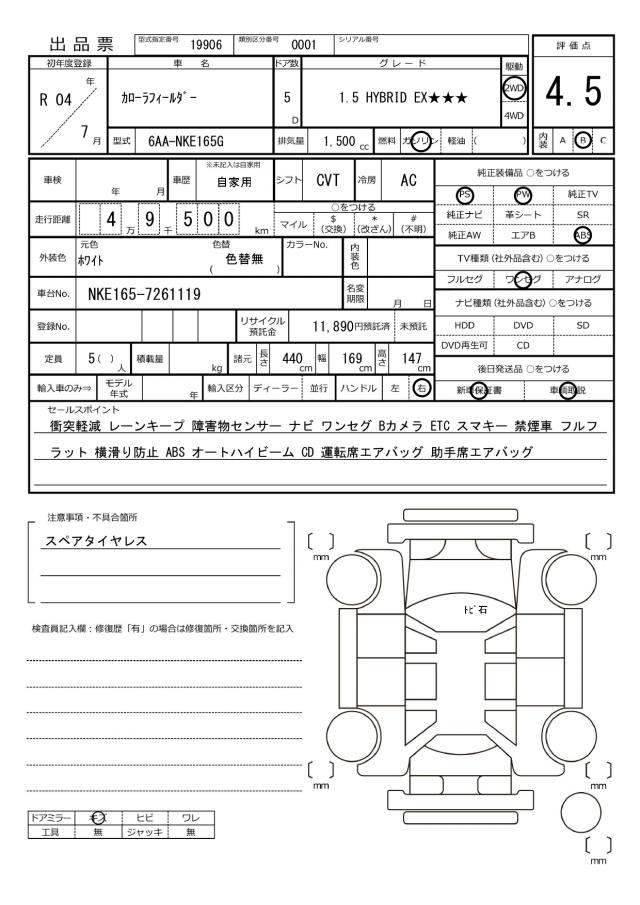 出品票 型式指定番号 19906 類別区分番号 0001 シリアル番号
評価点
初年度登録 車名 ドア数 グレード 駆動
R 04 年 カローラフィールダー 5 D 1.5 HYBRID EX★★★ 2WD 4.5
7 月 4WD
型式 6AA-NKE165G 排気量 1,500 cc 燃料 ガソリン 軽油 ( ) 内装 A B C
車検 年 月 車歴 ※未記入は自家用 自家用 シフト CVT 冷房 AC
純正装備品 ○をつける
PS PW 純正TV
走行距離 4 万 9 千 5 0 0 km ○をつける
マイル $(交換) *(改ざん) #(不明)
純正ナビ 革シート SR
純正AW エアB ABS
外装色 元色 ホワイト 色替 ( 色替無 ) カラーNo. 内装色
TV種類 (社外品含む) ○をつける
フルセグ ワンセグ アナログ
車台No. NKE165-7261119 名変期限 月 日
ナビ種類 (社外品含む) ○をつける
登録No. リサイクル預託金 11,890円預託済 未預託
HDD DVD SD
DVD再生可 CD
定員 5 ( ) 人 積載量 kg 諸元 長さ 440 cm 幅 169 cm 高さ 147 cm
後日発送品 ○をつける
輸入車のみ⇒ モデル年式 年 輸入区分 ディーラー 並行 ハンドル 左 右
新車保証書 車輌取説
セールスポイント
衝突軽減 レーンキープ 障害物センサー ナビ ワンセグ Bカメラ ETC スマキー 禁煙車 フルフ
ラット 横滑り防止 ABS オートハイビーム CD 運転席エアバッグ 助手席エアバッグ
注意事項・不具合箇所
スペアタイヤレス
mm
mm
ﾄﾋﾞ石
検査員記入欄：修復歴「有」の場合は修復箇所・交換箇所を記入
mm
mm
ドアミラー キズ ヒビ ワレ
工具 無 ジャッキ 無
mm